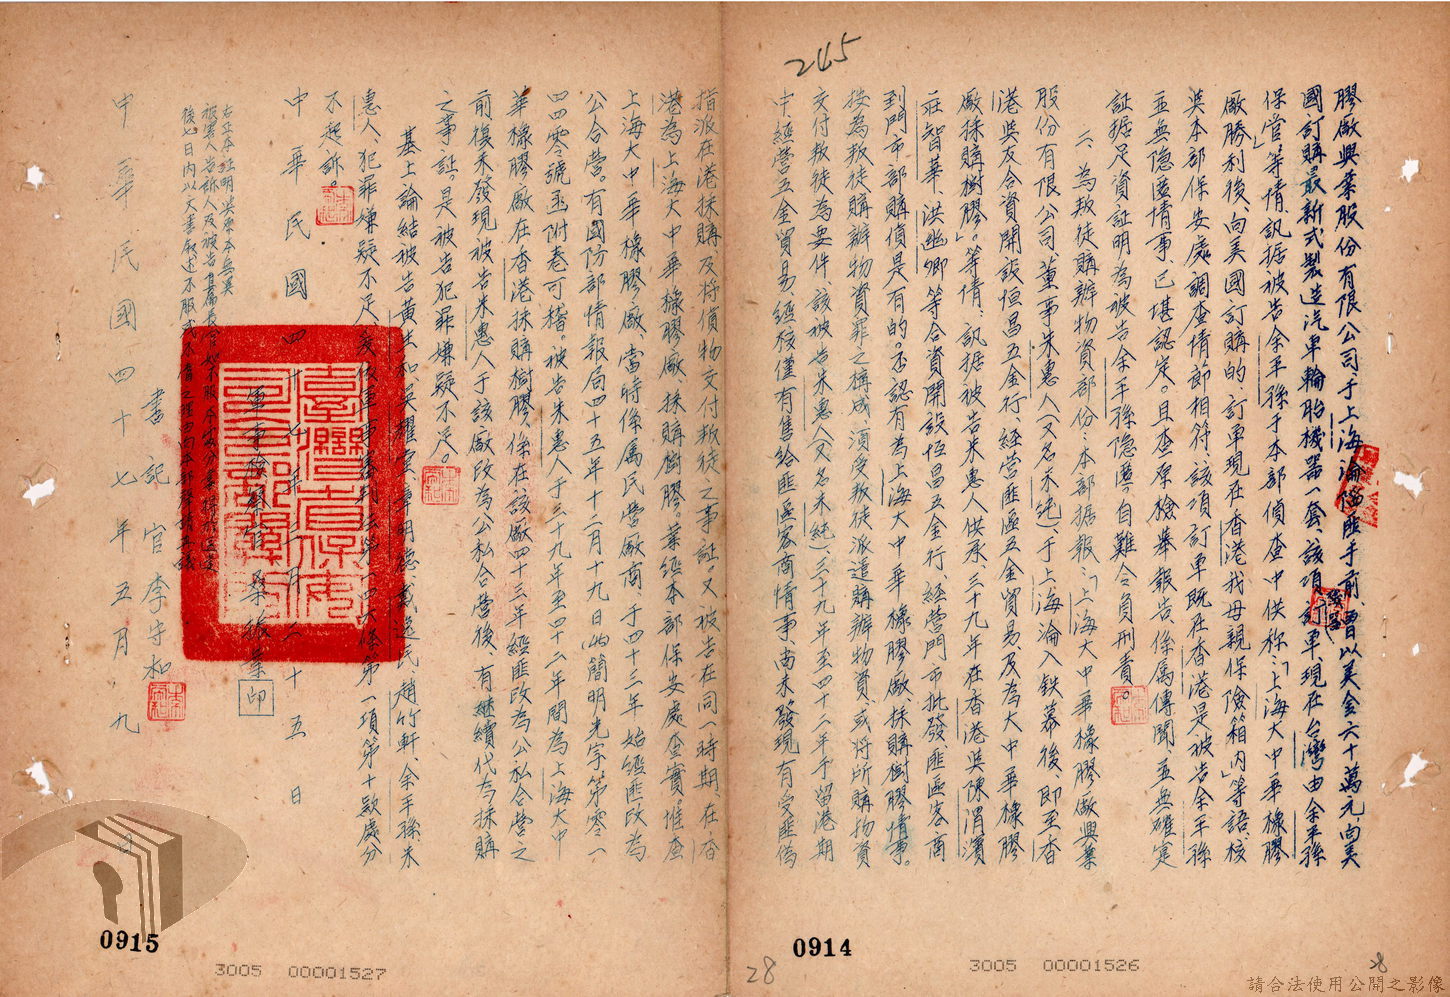 245
膠廠興業股份有限公司于上海淪陷匪手前、曾以美金六十萬元、向美
國訂購最新式製造汽車輪胎機器一套、該項訂單、現在台灣由余平孫
保管」等情、訊据被告余平孫于本部偵查中供称：「上海大中華橡膠
廠勝利後、向美國訂購的、訂單現在香港我母親保險箱內」等語、核
與本部保安處調查情節相符、該項訂單既在香港、是被告余平孫
並無隐匿情事、已堪認定。且查原檢舉報告、係属傳聞、並無確定
証据足資証明為被告余平孫隐匿、自難令負刑責。
二、為叛徒購辦物資部份：本部据報：「上海大中華橡膠廠興業
股份有限公司董事朱惠人(又名朱純)、于上海淪入铁幕後、即至香
港與友合資開設恒昌五金行、経营匪區五金貿易、及為大中華橡膠
廠採購樹膠」。等情、訊据被告朱惠人供承、三十九年在香港與陳渭濱
莊智華、洪幽卿等合資開設恒昌五金行、経营門市批發、匪區客商
到門市部購貨是有的。否認有為上海大中華橡膠廠採購樹膠情事。
按為叛徒購辦物資罪之構成、須受叛徒派遣購辦物資、或将所購物資
交付叛徒為要件、該被告朱惠人(又名朱純)、三十九年至四十二年于留港期
中、経营五金貿易、経核僅有售給匪區客商情事、尚未發現有受匪偽
指派在港採購及将貨物交付叛徒之事証。又被告在同一時期、在香
港為上海大中華橡膠廠、採購樹膠。業経本部保安處查實。惟查
上海大中華橡膠廠、當時係属民营廠商、于四十三年始経匪改為
公合营。有國防部情報局四十五年十二月十九日(45)簡明光字第零一
四四零號函附卷可稽。被告朱惠人于三十九年至四十二年間為上海大中
華橡膠廠在香港採購樹膠、係在該廠四十三年経匪改為公私合营之
前、復未發現被告朱惠人于該廠改為公私合营後、有継續代為採購
之事証。是被告犯罪嫌疑不足。
基上論結、被告黃生和、吳耀雲、章明德、戴逸民、趙竹軒、余平孫、朱
惠人、犯罪嫌疑不足、爰依軍事審判法第一四六條第一項第十款處分
不起訴。
中華民國四十七年二月二十五日
軍事檢察官 桑振業 印
右正本証明與原本無異
書記官 李守和
中華民國四十七年五月九日
0915
0914
3005 00001527
3005 00001526
28
28
請合法使用公開之影像